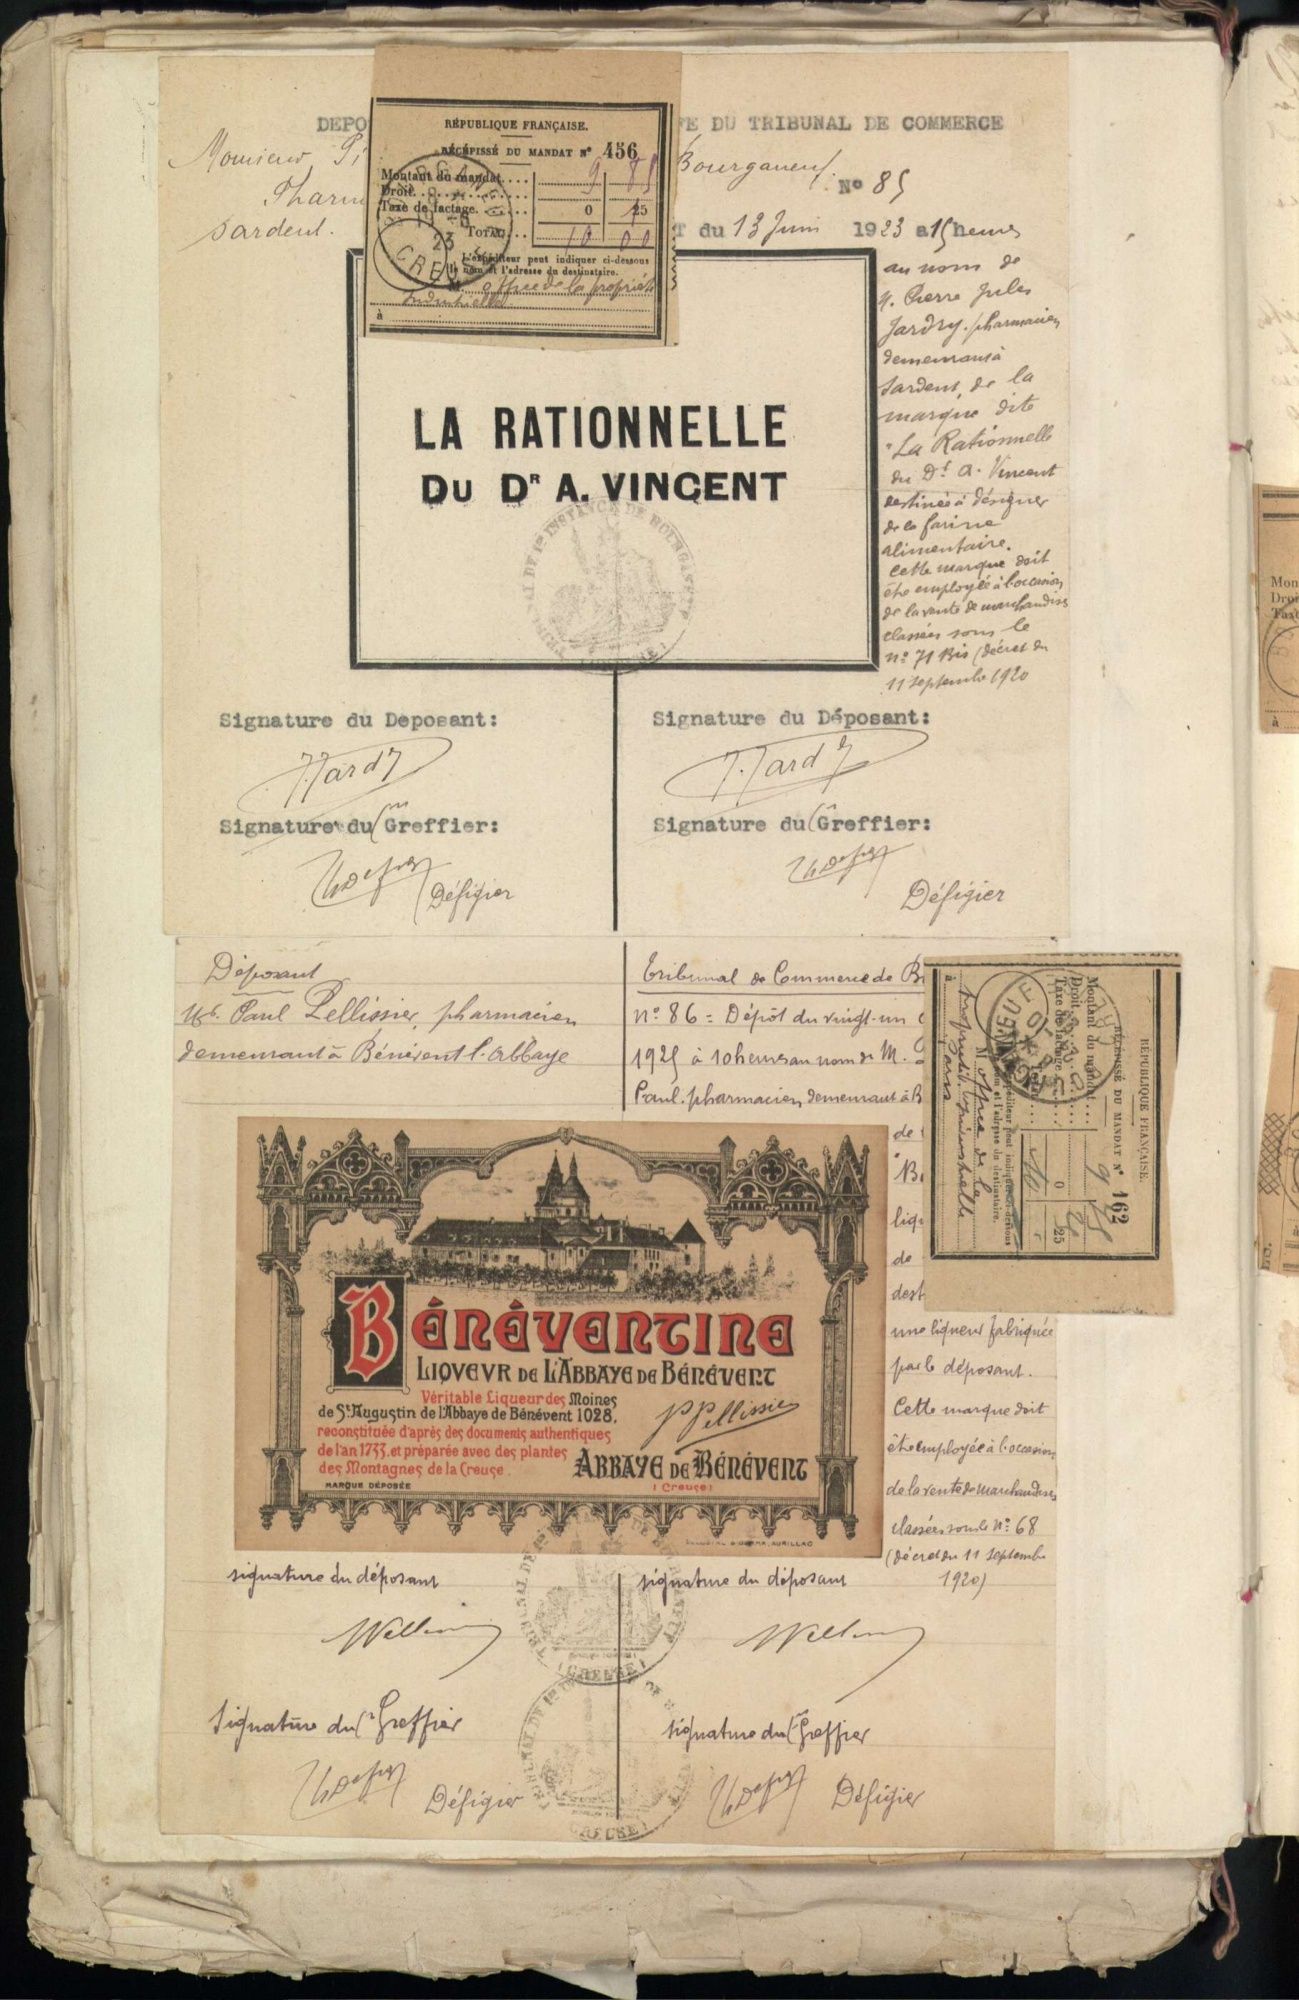 DEPO
FE DU TRIBUNAL DE COMMERCE
Monsieur Pi
Bourganeuf.
Pharm
No 85
Sardent.
T du 13 Juin 1923 a 15 heures
RÉPUBLIQUE FRANÇAISE.
RÉCÉPISSÉ DU MANDAT No 456
Montant du mandat.... 9 85
Droit
Taxe de factage 0 25
TOTAL... 10 00
L'expéditeur peut indiquer ci-dessous
le nom et l'adresse du destinataire.
M. office de la propriété
industrielle
à
CREUSE
LA RATIONNELLE
DU DR A. VINCENT
au nom de
M. Pierre Jules
Jardry. pharmacien
demeurant à
Sardent, de la
marque dite
"La Rationnelle
du Dr A. Vincent
destinée à désigner
de la farine
alimentaire.
Cette marque doit
être employée à l'occasion
de la vente de marchandises
classées sous le
no 71 Bis (décret du
11 septembre 1920
TRIBUNAL DE 1re INSTANCE DE BOURGANEUF
Signature du Deposant:
Signature du Déposant:
Signature du Greffier:
Signature du Greffier:
Défigier
Défigier
Déposant
Mr. Paul Pellissier, pharmacien
demeurant à Bénévent l'Abbaye
Tribunal de Commerce de B
no 86 = Dépôt du vingt-un
1925 à 10 heures au nom de M.
Paul. pharmacien demeurant à B
de
liqu
de
dest
une liqueur fabriquée
par le déposant.
Cette marque doit
être employée à l'occasion
de la vente de marchandises
classées sous le No 68
(décret du 11 septembre
1920)
RÉPUBLIQUE FRANÇAISE.
RÉCÉPISSÉ DU MANDAT No 162
Montant du mandat....
Droit
Taxe de factage 0 25
M office de la
propriété industrielle
à Paris
BÉNÉVENTINE
LIQVEVR DE L'ABBAYE DE BÉNÉVENT
Véritable Liqueur des Moines
de St Augustin de l'Abbaye de Bénévent 1028,
reconstituée d'après des documents authentiques
de l'an 1733, et préparée avec des plantes
des Montagnes de la Creuse.
PPellissier
ABBAYE DE BÉNÉVENT
(Creuse)
MARQUE DÉPOSÉE
AURILLAC
signature du déposant
signature du déposant
signature du Greffier
signature du Greffier
Défigier
Défigier
(CREUSE)
(CREUSE)
Mon
Droi
Taxe
à